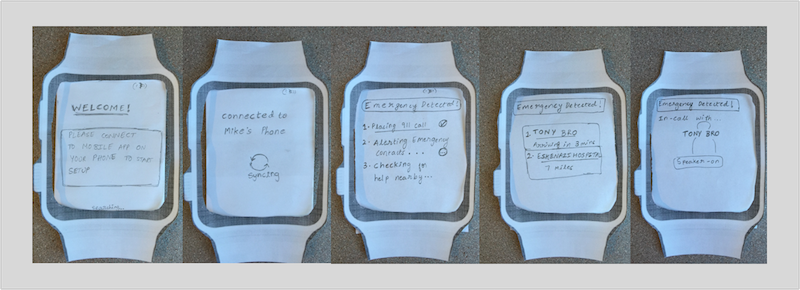 WELCOME!
PLEASE CONNECT
TO MOBILE APP ON
YOUR PHONE TO START
SETUP
connected to
Mike's Phone
Syncing
Emergency Detected!
1. Placing 911 call
2. Alerting Emergency
contacts...
3. Checking for
help nearby...
Emergency Detected!
1. TONY BRO
Arriving in 3 min
2. ESKENAZI HOSPITAL
7 miles
Emergency Detected!
In-call with...
TONY BRO
Speaker-on